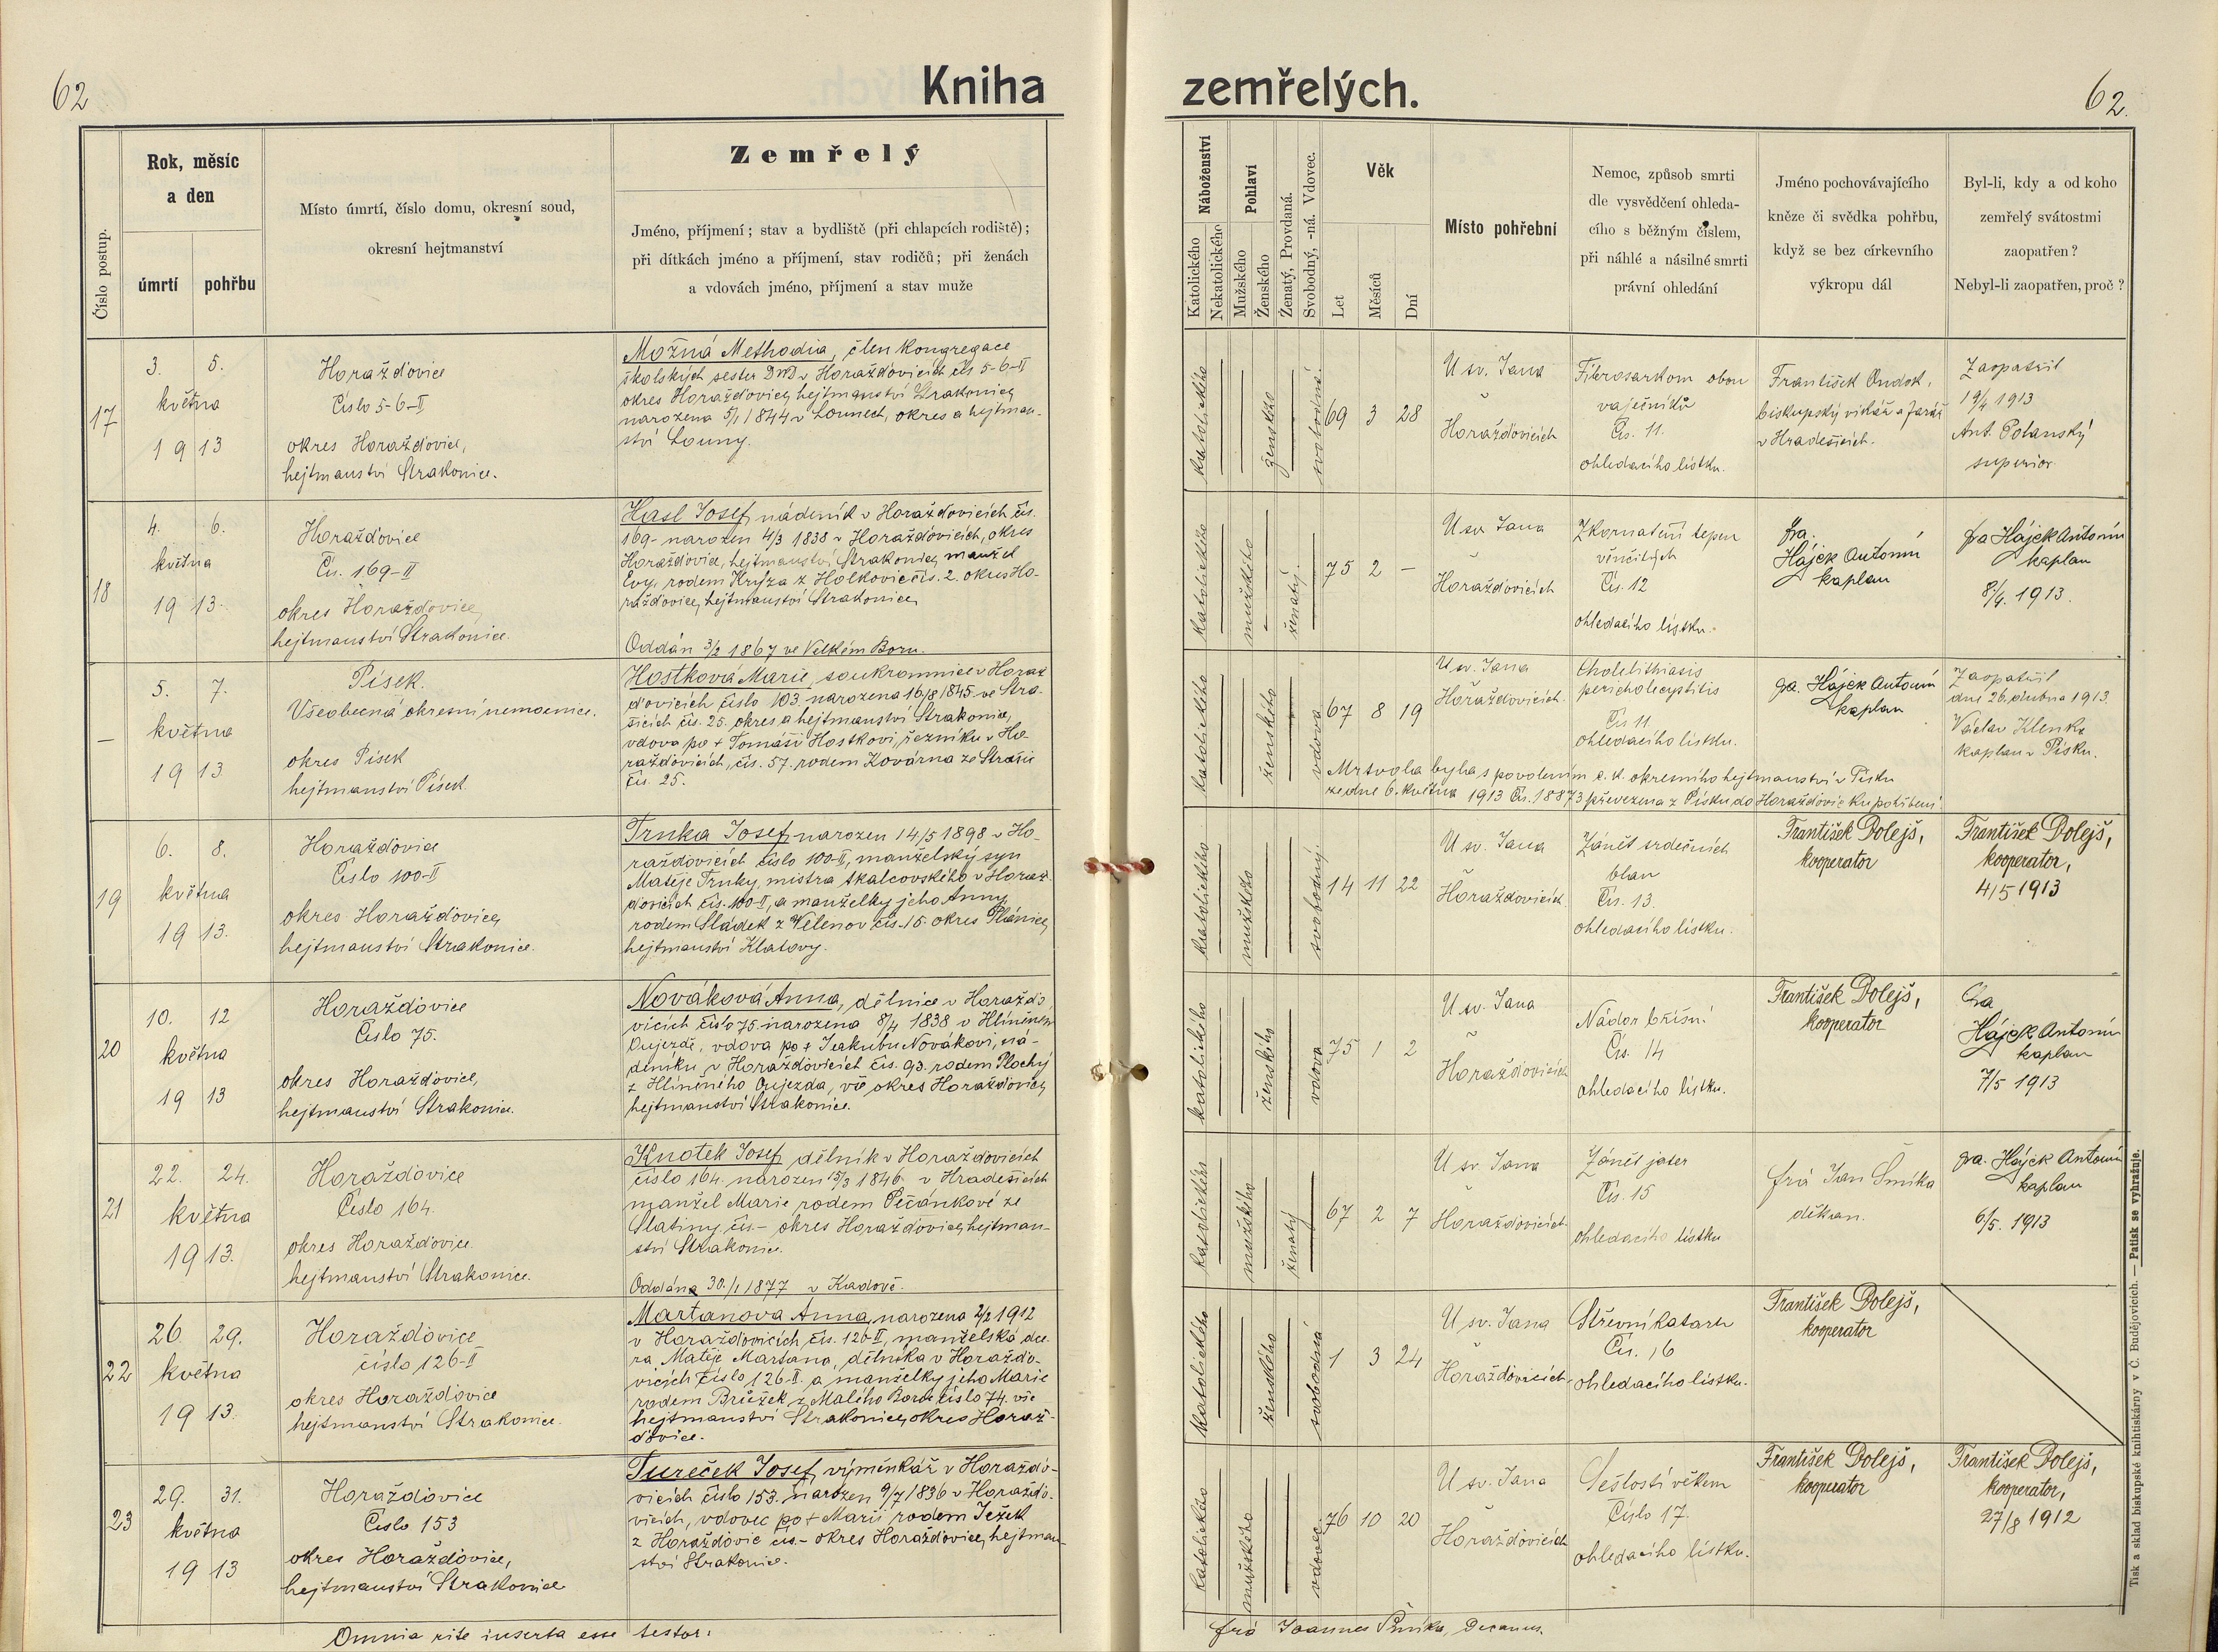 62
Kniha
zemřelých.
62.
Číslo postup.
Rok, měsíc
a den
úmrtí
pohřbu
Místo úmrtí, číslo domu, okresní soud,
okresní hejtmanství
Zemřelý
Jméno, příjmení; stav a bydliště (při chlapcích rodiště);
při dítkách jméno a příjmení, stav rodičů; při ženách
a vdovách jméno, příjmení a stav muže
Náboženství
Katolického
Nekatolického
Pohlaví
Mužského
Ženského
Ženatý, Provdaná.
Svobodný, -ná. Vdovec.
Věk
Let
Měsíců
Dní
Místo pohřební
Nemoc, způsob smrti
dle vysvědčení ohleda-
cího s běžným číslem,
při náhlé a násilné smrti
právní ohledání
Jméno pochovávajícího
kněze či svědka pohřbu,
když se bez církevního
výkropu dál
Byl-li, kdy a od koho
zemřelý svátostmi
zaopatřen?
Nebyl-li zaopatřen, proč?
17
3. 5.
května
1913
Horažďovice
Číslo 5-6-II
okres Horažďovice,
hejtmanství Strakonice.
Možná Methodia, člen kongregace
školských sester DND v Horažďovicích čís 5-6-II
okres Horažďovice, hejtmanství Strakonice,
narozena 5/1 1844 v Lounech, okres a hejtman-
ství Louny.
katolického
ženského
svobodná
69 3 28
U sv. Jana
v
Horažďovicích
Fibrosarkom obou
vaječníků
Čís. 11.
ohledacího lístku.
František Ondok,
biskupský vikář a farář
v Hradešicích.
Zaopatřil
19/4 1913
Ant. Polanský
superior
18
4. 6.
května
1913.
Horažďovice
Čís. 169-II
okres Horažďovice,
hejtmanství Strakonice.
Hasl Josef, nádeník v Horažďovicích čís.
169- narozen 4/3 1838 v Horažďovicích, okres
Horažďovice, hejtmanství Strakonice, manžel
Evy, rodem Kryza z Holkovic čís. 2. okres Ho-
ražďovice, hejtmanství Strakonice,
Oddán 3/2 1867 ve Velkém Boru.
katolického
mužského
ženatý.
75 2 –
U sv. Jana
v
Horažďovicích
Zkornatění tepen
věnčitých
Čís. 12
ohledacího lístku.
fra.
Hájek Antonín
kaplan
fra Hájek Antonín
kaplan
8/4. 1913.
–
5. 7.
května
1913
Písek.
Všeobecná okresní nemocnice.
okres Písek
hejtmanství Písek
Hostková Marie, soukromnice v Horaž
ďovicích číslo 103. narozena 16/8 1845 ve Stra-
šicích čís. 25. okres a hejtmanství Strakonice,
vdova po + Tomáši Hostkovi, řezníku v Ho-
ražďovicích, čís. 57. rodem Kovárna ze Strašic
čís. 25.
katolického
ženského
vdova
67 8 19
U sv. Jana
v Horažďovicích.
Cholelithiasis
pericholecystitis
Čís 11.
ohledacího lístku.
fra. Hájek Antonín
kaplan
Zaopatřil
dne 26. dubna 1913.
Václav Klenka
kaplan v Písku.
Mrtvola byla s povolením c. k. okresního hejtmanství v Písku
ze dne 6. května 1913 Čís. 18873 převezena z Písku do Horažďovic ku pohřbení.
19
6. 8.
května
1913.
Horažďovice
Číslo 100-II
okres Horažďovice,
hejtmanství Strakonice.
Trnka Josef, narozen 14/5 1898 v Ho-
ražďovicích číslo 100-II, manželský syn
Matěje Trnky, mistra tkalcovského v Horaž-
ďovicích čís. 100-II, a manželky jeho Anny,
rodem Sládek z Velenov čís. 15 okres Plánice,
hejtmanství Klatovy.
katolického
mužského
svobodný.
14 11 22
U sv. Jana
v
Horažďovicích
Zánět srdečních
blan
Čís. 13.
ohledacího lístku.
František Dolejš,
kooperator
František Dolejš,
kooperator,
4/5 1913
20
10. 12
května
1913
Horažďovice
Číslo 75.
okres Horažďovice,
hejtmanství Strakonice.
Nováková Anna, dělnice v Horaždo
vicích číslo 75. narozena 8/4 1838 v Hliněném
Oujezdě, vdova po + Jeakubu Novákovi, ná-
deníku v Horažďovicích čís. 93. rodem Plochý
z Hliněného Oujezda, vše okres Horažďovice,
hejtmanství Strakonice.
katolického
ženského
vdova
75 1 2
U sv. Jana
v
Horažďovicích
Nádor břišní
Čís. 14
ohledacího lístku.
František Dolejš,
kooperator
fra
Hájek Antonín
kaplan
7/5 1913
21
22. 24.
května
1913.
Horažďovice
Číslo 164.
okres Horažďovice.
hejtmanství Strakonice.
Knotek Josef, dělník v Horažďovicích
číslo 164. narozen 15/3 1846. v Hradešicích
manžel Marie rodem Pečánkové ze
Slatiny, čís.- okres Horažďovice, hejtman-
ství Strakonice.
Oddán 30./1 1877 v Kadově.
katolického
mužského
ženatý
67 2 7
U sv. Jana
v
Horažďovicích.
Zánět jater
Čís. 15
ohledacího lístku
frá Jan Šmíka
děkan.
fra. Hájek Antonín
kaplan
6/5. 1913
22
26. 29.
května
1913.
Horažďovice
číslo 126-II
okres Horažďovice
hejtmanství Strakonice.
Martanova Anna, narozena 2/2 1912
v Horažďovicích, čís. 126-II, manželská dce-
ra Matěje Martana, dělníka v Horažďo-
vicích číslo 126-II. a manželky jeho Marie
rodem Brůžek z Malého Boru číslo 74. vše
hejtmanství Strakonice, okres Horaž-
ďovice.
katolického
ženského
svobodná
1 3 24
U sv. Jana
v
Horažďovicích.
Střevní katarh
Čís. 16
ohledacího lístku.
František Dolejš,
kooperator
23
29. 31.
května
1913
Horažďovice
Číslo 153
okres Horažďovice,
hejtmanství Strakonice
Tureček Josef, výměnkář v Horažďo-
vicích číslo 153. narozen 9/7 1836 v Horažďo-
vicích, vdovec po + Marii rodem Ježek
z Horažďovic čís.- okres Horažďovice, hejtman-
ství Strakonice.
katolického
mužského
vdovec.
76 10 20
U sv. Jana
v
Horažďovicích
Sešlostí věkem
Číslo 17.
ohledacího lístku.
František Dolejš,
kooperator
František Dolejš,
kooperator,
27/8 1912
Omnia rite inserta esse testor:
frá Joannes Šmíka, Decanus.
Tisk a sklad biskupské knihtiskárny v Č. Budějovicích. — Patisk se vyhražuje.